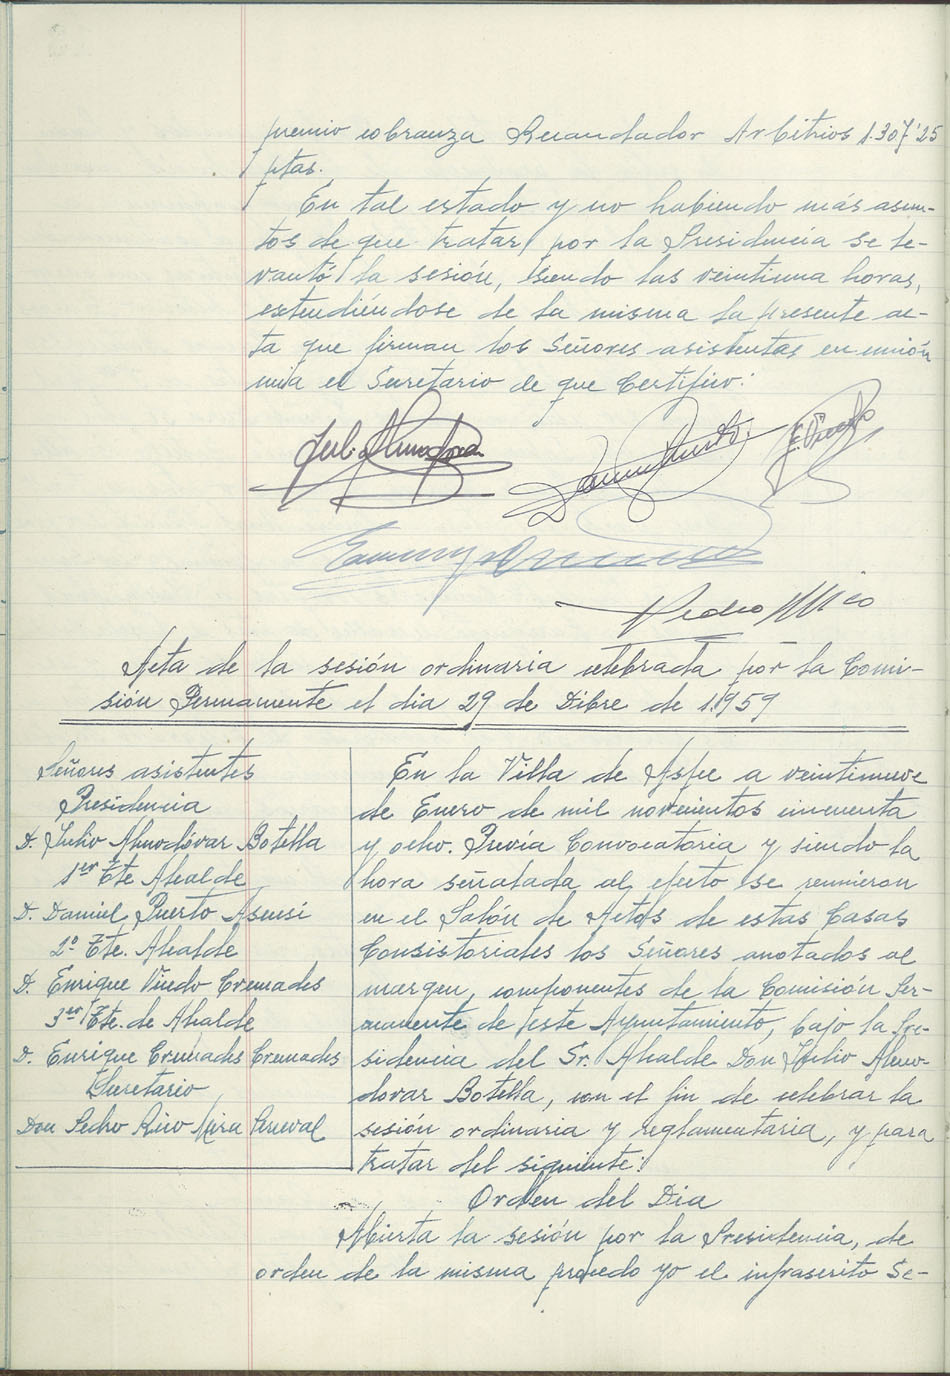 premio cobranza Recaudador Arbitrios 1.307'25
ptas.
En tal estado y no habiendo más asun-
tos de que tratar, por la Presidencia se le-
vantó la sesión, siendo las veintiuna horas,
extendiéndose de la misma la presente ac-
ta que firman los Señores asistentes en unión
mia el Secretario de que Certifico:
Jul. Almodovar
Daniel Puerto
Pedro Rico
Acta de la sesión ordinaria celebrada por la Comi-
sión Permamente el dia 29 de Dibre de 1.959
Señores asistentes
Presidencia
D. Julio Almodóvar Botella
1er Tte Alcalde
D. Daniel Puerto Asensi
2º Tte. Alcalde
D. Enrique Viñedo Cremades
3er Tte. de Alcalde
D. Enrique Cremades Cremades
Secretario
Don Pedro Rico Mira Perceval
En la Villa de Aspe a veintinueve
de Enero de mil novecientos cincuenta
y ocho. Previa Convocatoria y siendo la
hora señalada al efecto se reunieron
en el Salón de Actos de estas Casas
Consistoriales los Señores anotados al
margen, componentes de la Comisión Per-
manente de este Ayuntamiento, bajo la Pre-
sidencia del Sr. Alcalde Don Julio Almo-
dovar Botella, con el fin de celebrar la
sesión ordinaria y reglamentaria, y para
tratar del siguiente:
Orden del Dia
Abierta la sesión por la Presidencia, de
orden de la misma procedo yo el infrascrito Se-